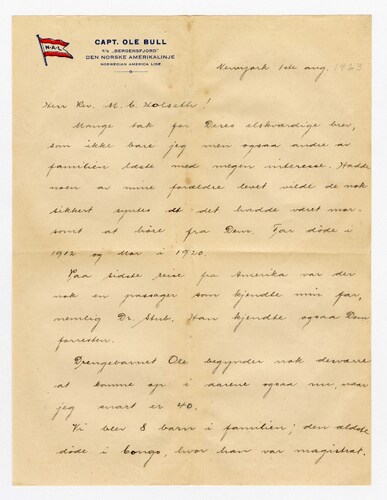 N.A.L
CAPT. OLE BULL
S/S „BERGENSFJORD"
DEN NORSKE AMERIKALINJE
NORWEGIAN AMERICA LINE
Newyork 1ste aug. 1923
Herr Rev. M. C. Holseth!
Mange tak for Deres elskværdige brev,
som ikke bare jeg men ogsaa andre av
familien læste med megen interesse. Hadde
noen av mine forældre levet vilde de nok
sikkert syntes at det hadde været mor-
somt at høre fra Dem. Far døde i
1912 og Mor i 1920.
Paa sidste reise fra Amerika var der
nok en passager som kjendte min far,
nemlig Dr. Stub. Han kjendte ogsaa Dem
forresten.
Drengebarnet Ole begynder nok desværre
at komme op i aarene ogsaa nu, naar
jeg snart er 40.
Vi blev 8 barn i familien; den ældste
døde i Congo, hvor han var magistrat.